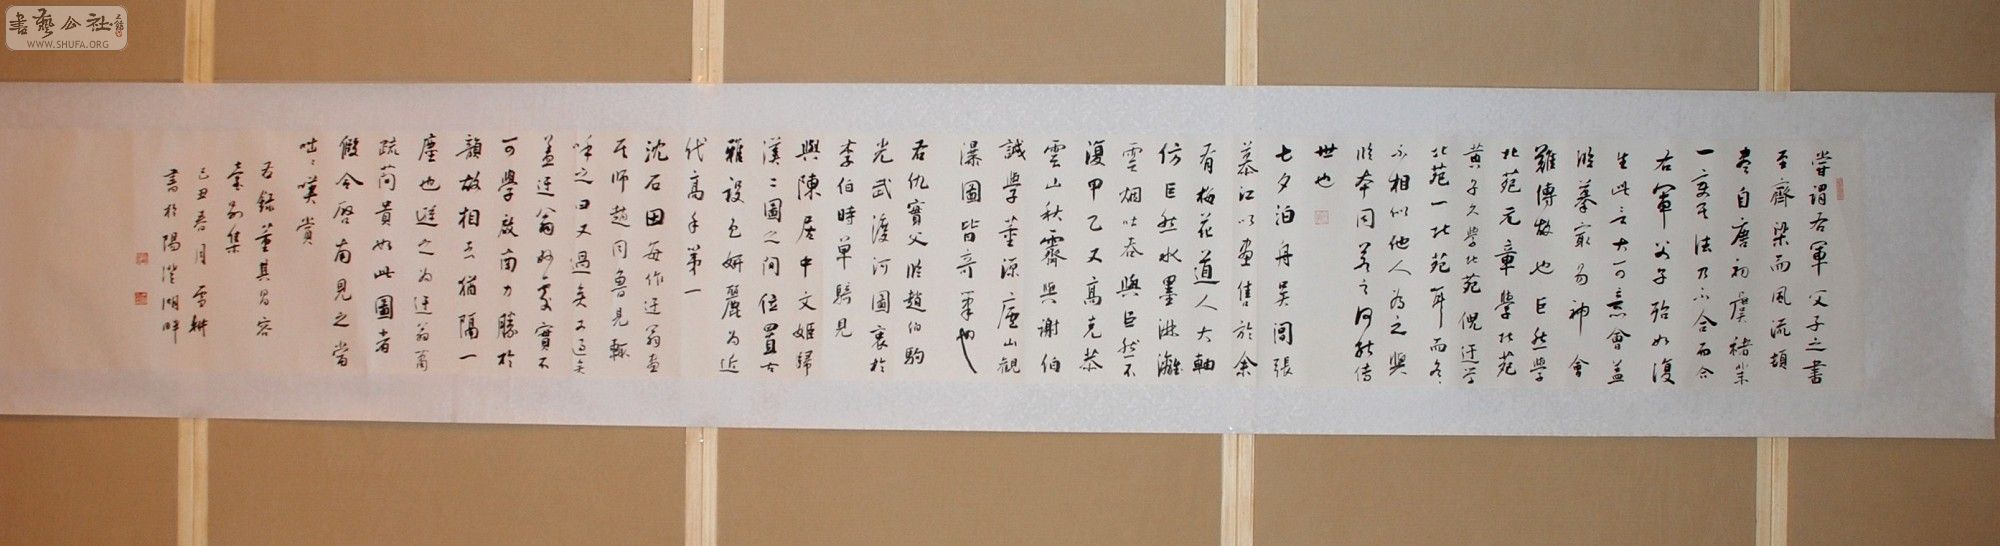 書藝公社
WWW.SHUFA.ORG
嘗謂右軍父子之書
至齊梁而風流頓
盡自唐初虞褚輩
一變其法乃不合而合
右軍父子殆如復
生此言大可意會蓋
臨摹最易神會
難傳故也巨然學
北苑元章學北苑
黄子久學北苑倪迂學
北苑一北苑耳而各
不相似他人為之與
臨本同若之何能傳
世也
七夕泊舟吳閶張
慕江以畫售於余
有梅花道人大軸
仿巨然水墨淋漓
雲烟吐吞與巨然不
復甲乙又高克恭
雲山秋霽與謝伯
誠學董源廬山觀
瀑圖皆奇筆也
右仇實父臨趙伯駒
光武渡河圖衷於
李伯時單騎見
與陳居中文姬歸
漢二圖之間位置古
雅設色妍麗為近
代高手第一
沈石田每作迂翁畫
其師趙同魯見輒
呼之曰又過矣又過矣
蓋迂翁妙處實不
可學啟南力勝於
韻故相去猶隔一
塵也遜之為迂翁蕭
疏簡貴如此圖者
假令啓南見之當
咄咄嘆賞
右錄董其昌容
臺別集
己丑春月雪耕
書於陽澄湖畔